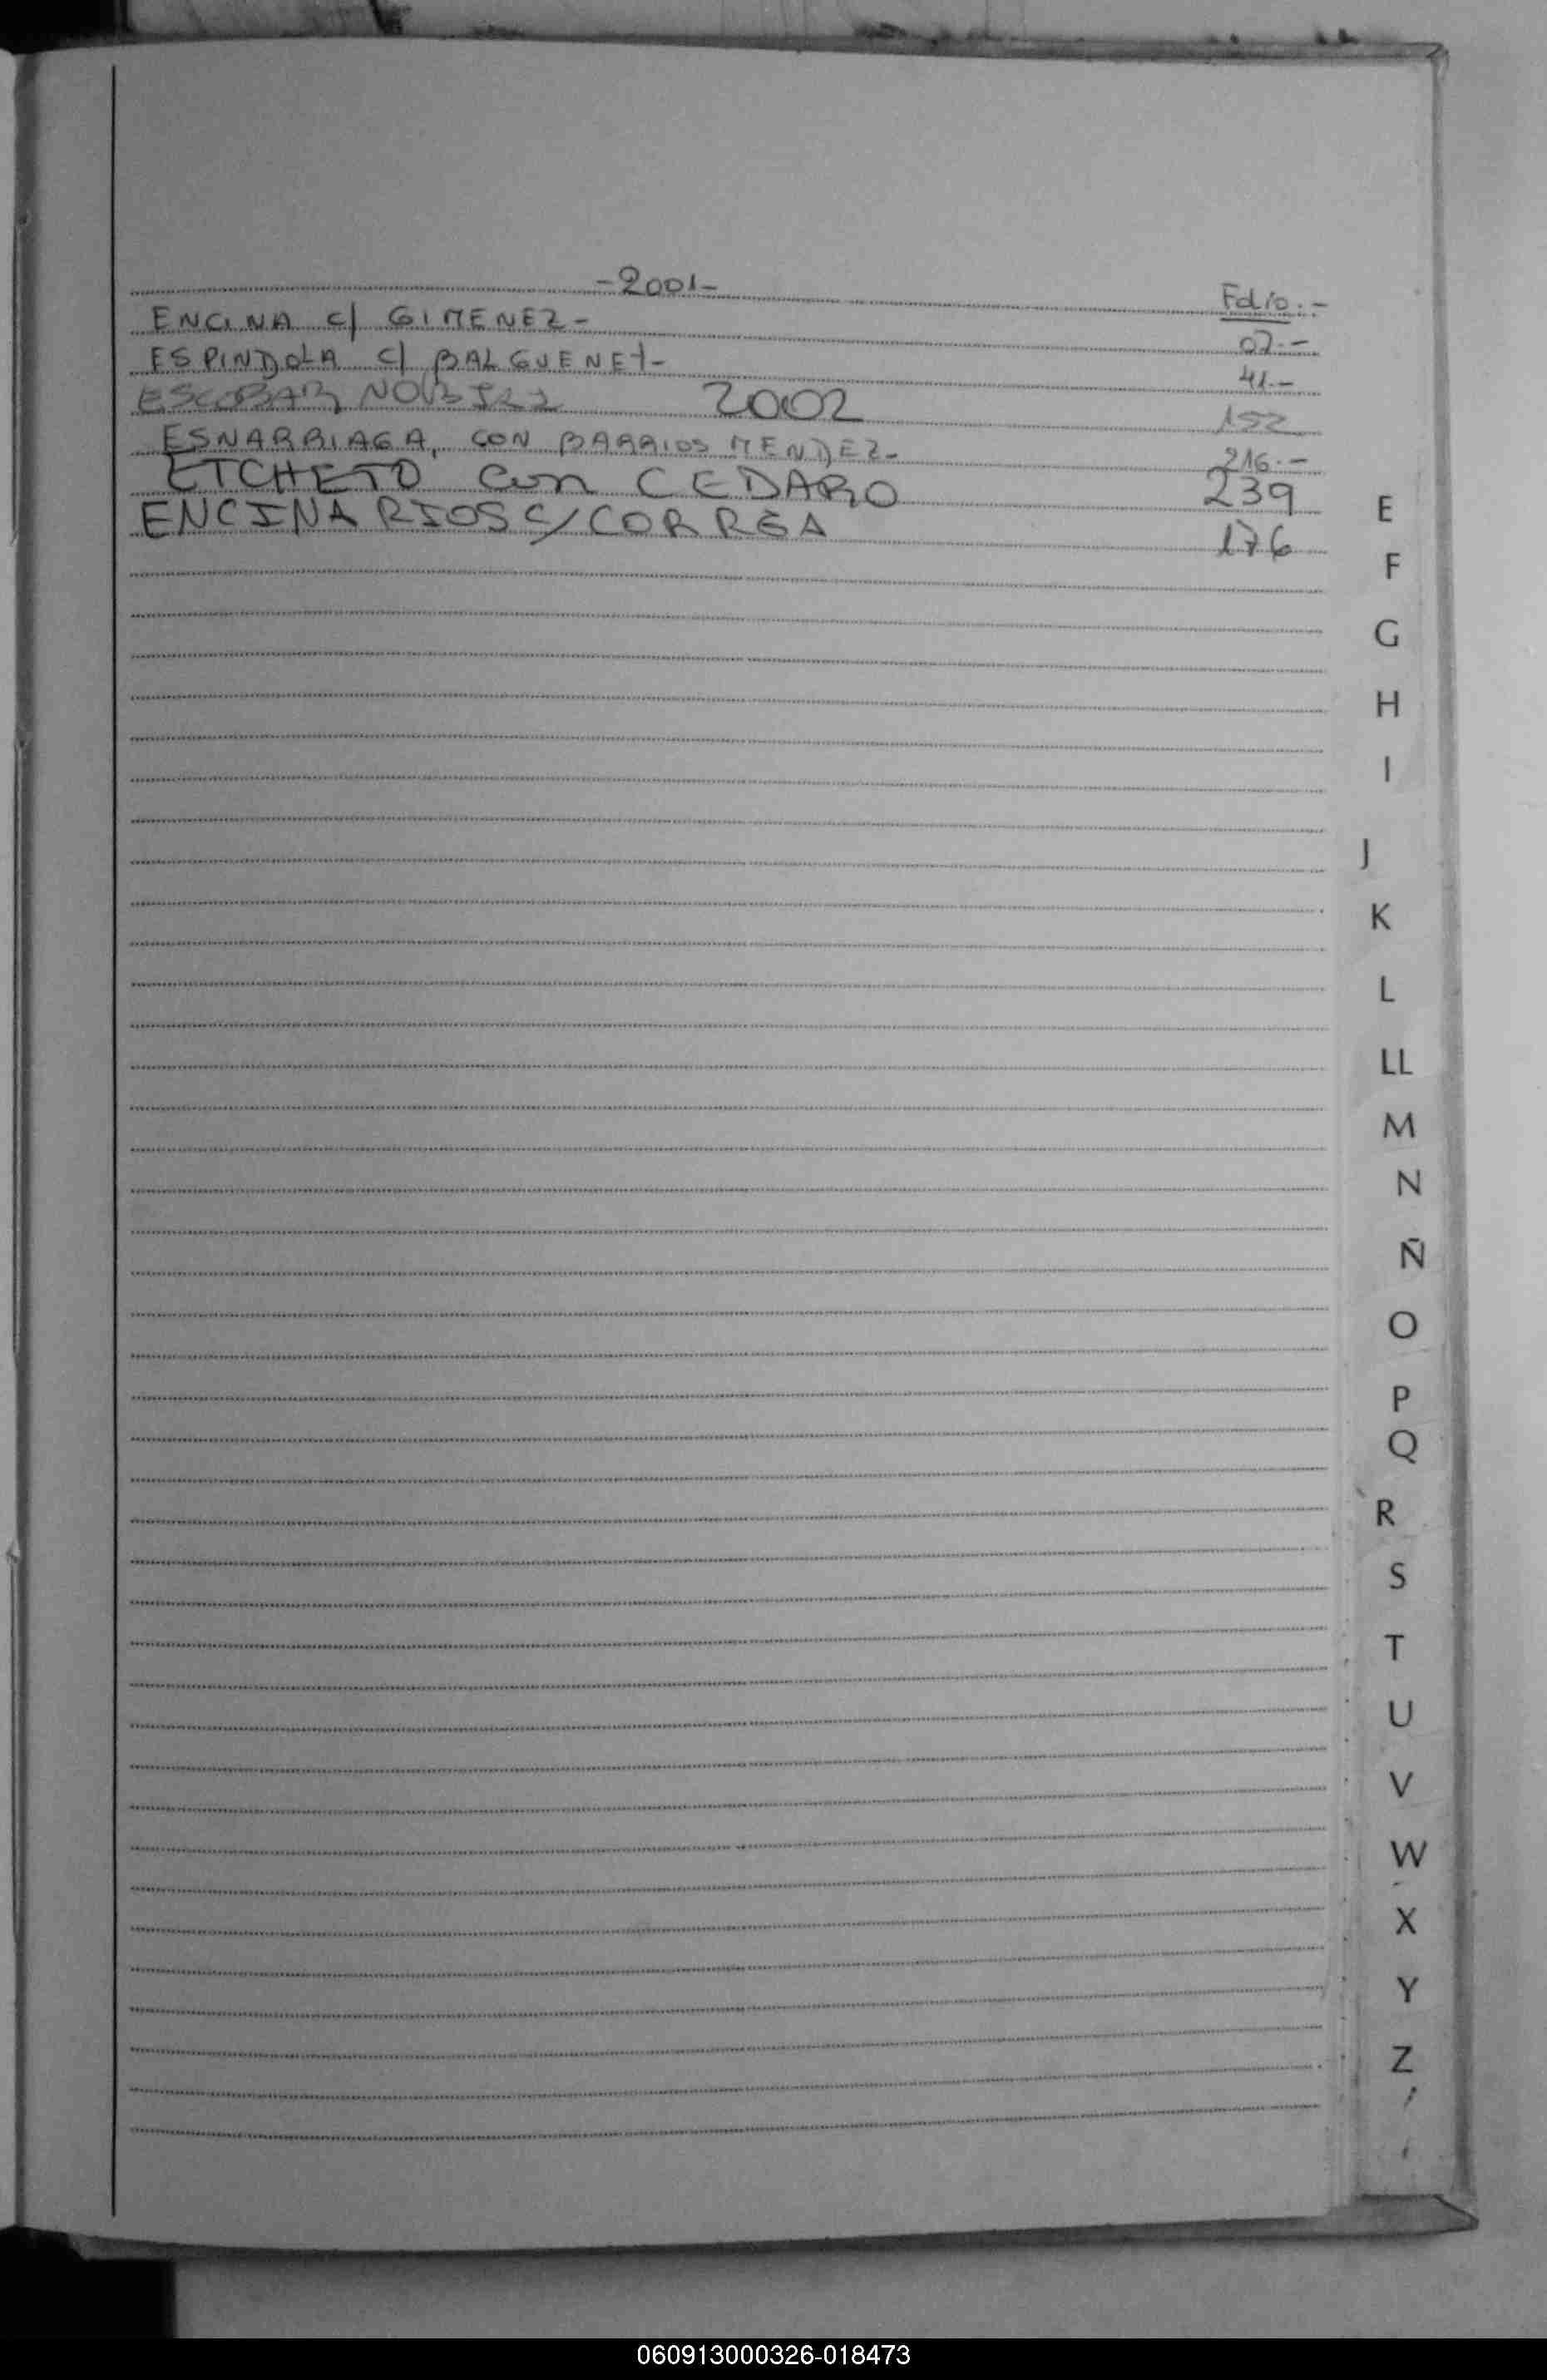 -2001- Folio.-
ENCINA c/ GIMENEZ- 07.-
ESPINDOLA c/ BALGUENET- 41.-
ESCOBAR 2002 152
ESNARRIAGA, CON BARRIOS MENDEZ- 216.-
ETCHETO con CEDARO 239
ENCINA RIOS C/ CORREA 176
E
F
G
H
I
J
K
L
LL
M
N
Ñ
O
P
Q
R
S
T
U
V
W
X
Y
Z
060913000326-018473